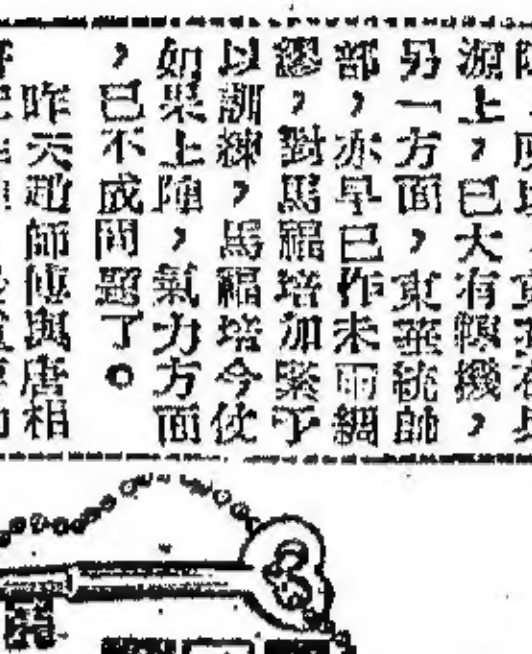 源上，已大有轉機，
另一方面，東華統帥
部，亦早已作未雨綢
繆，對馬福培加緊予
以訓練，馬福培今仗
如果上陣，氣力方面
，已不成問題了。
昨天趙師傅與唐相